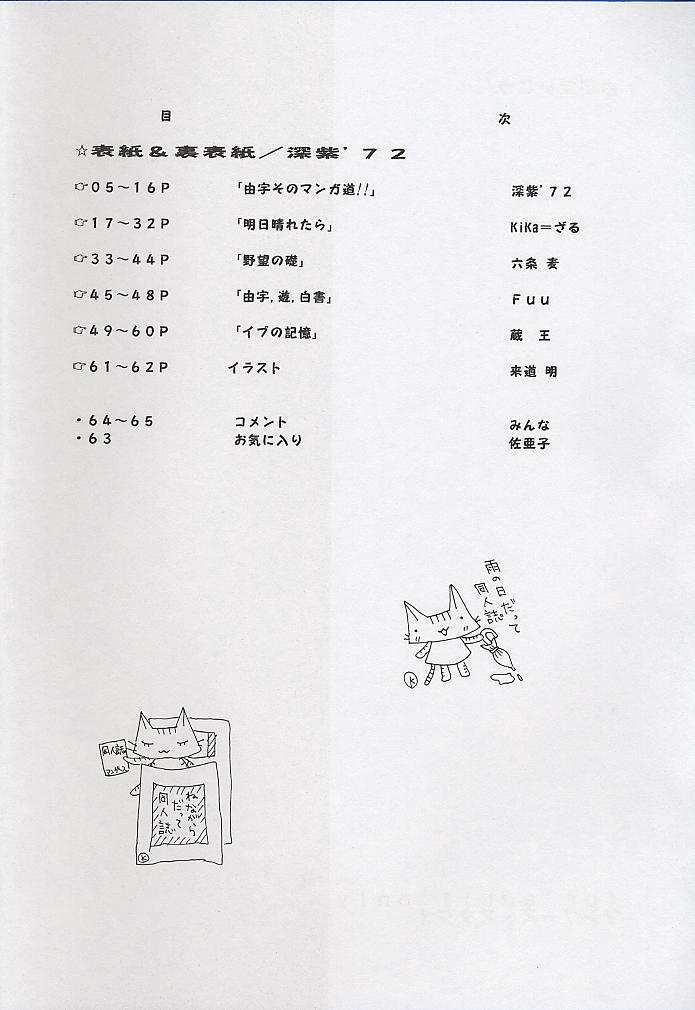 目 次
☆表紙&裏表紙/深紫'72
☞05~16P 「由宇そのマンガ道!!」 深紫'72
☞17~32P 「明日晴れたら」 KiKa=ざる
☞33~44P 「野望の礎」 六条 麦
☞45~48P 「由宇,遊,白書」 Fuu
☞49~60P 「イブの記憶」 蔵 王
☞61~62P イラスト 来道 明
・64~65 コメント みんな
・63 お気に入り 佐亜子
雨の日だって
同人誌。
K
同人誌
ねながら
だって
同人誌
K